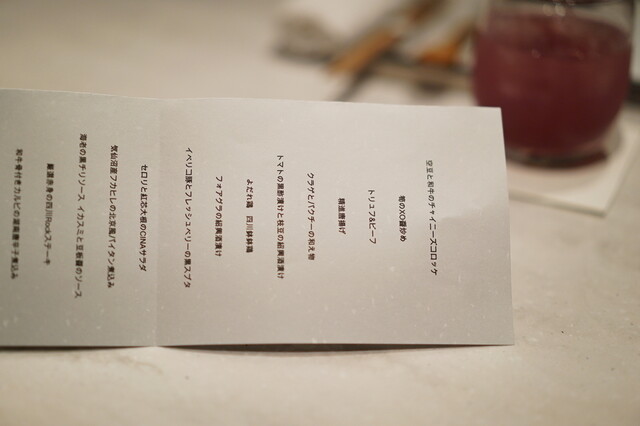 空豆と和牛のチャイニーズコロッケ
筍のXO醤炒め
トリュフ&ビーフ
精進唐揚げ
クラゲとパクチーの和え物
トマトの黒酢漬けと枝豆の紹興酒漬け
よだれ鶏 四川鉢鉢鶏
フォアグラの紹興酒漬け
イベリコ豚とフレッシュベリーの黒スブタ
セロリと紅芯大根のCINAサラダ
気仙沼産フカヒレの北京風パイタン煮込み
海老の黒チリソース イカスミと豆板醤のソース
厳選赤身の四川Rockステーキ
和牛骨付きカルビの湖南唐辛子煮込み